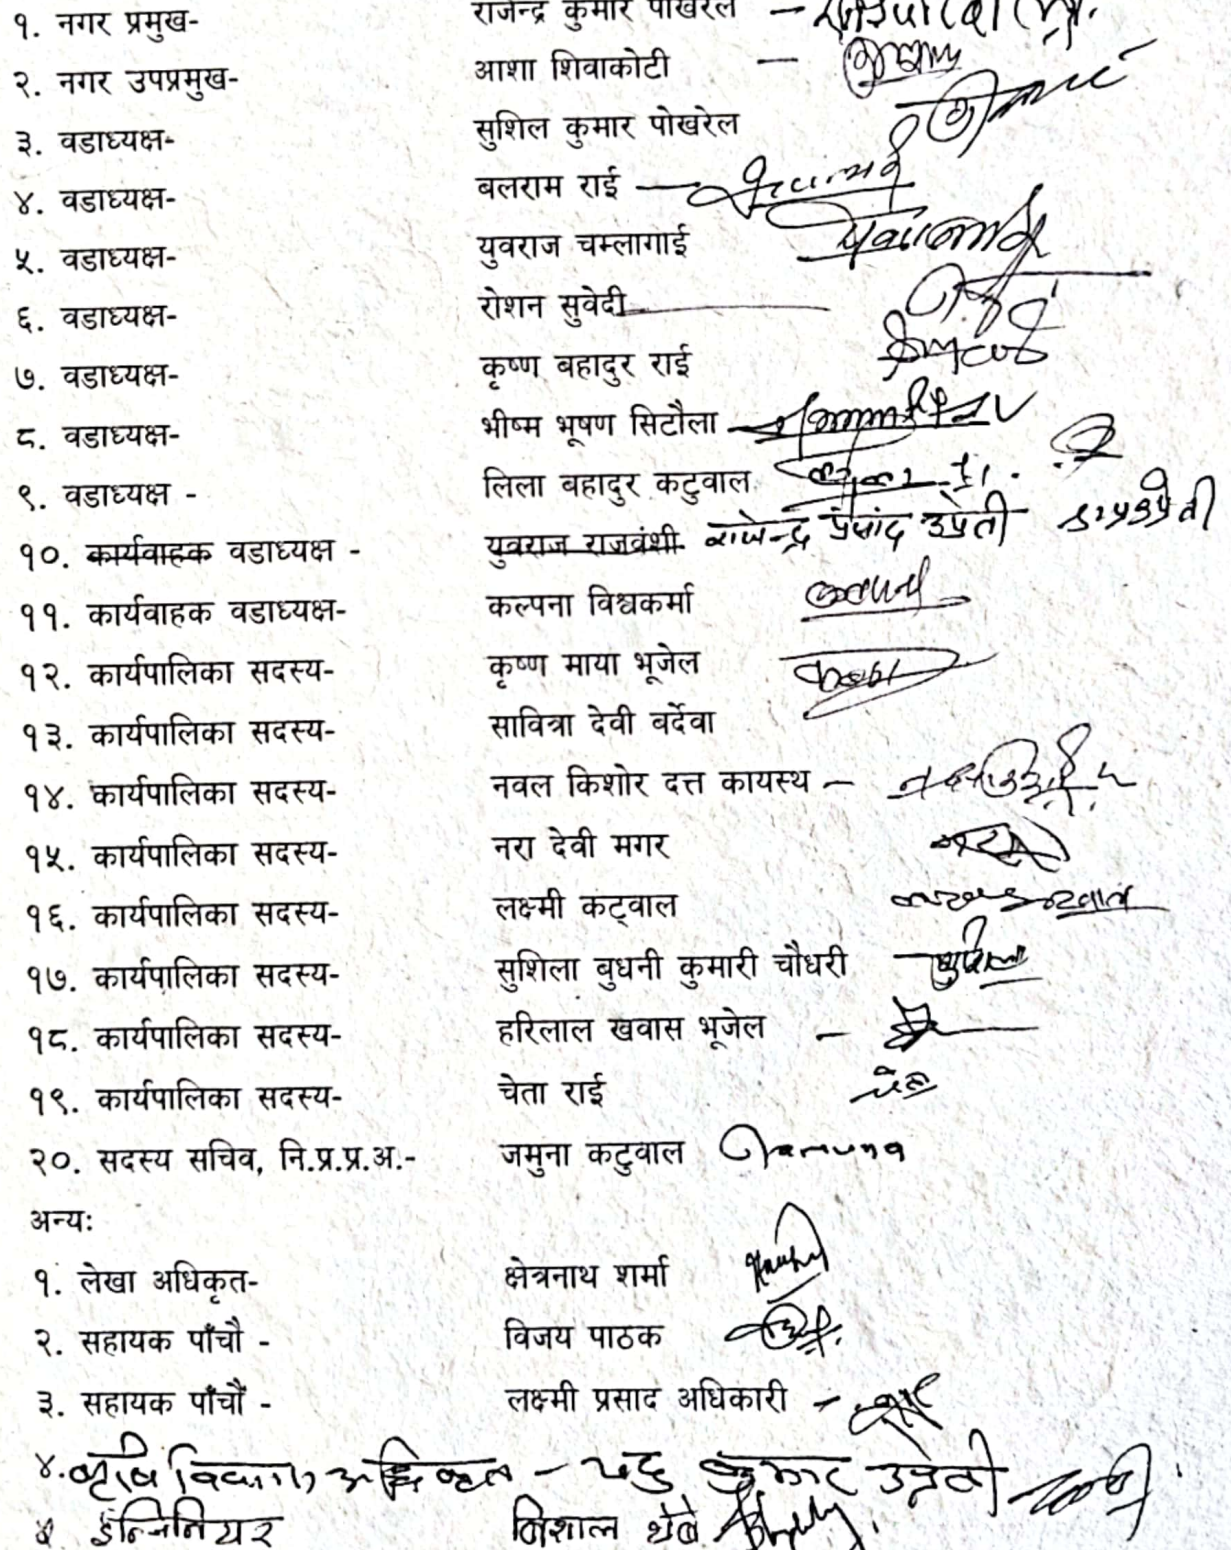 १. नगर प्रमुख- राजेन्द्र कुमार पोखरेल –
२. नगर उपप्रमुख- आशा शिवाकोटी –
३. वडाध्यक्ष- सुशिल कुमार पोखरेल
४. वडाध्यक्ष- बलराम राई –
५. वडाध्यक्ष- युवराज चम्लागाई
६. वडाध्यक्ष- रोशन सुवेदी
७. वडाध्यक्ष- कृष्ण बहादुर राई
८. वडाध्यक्ष- भीष्म भूषण सिटौला
९. वडाध्यक्ष - लिला बहादुर कटुवाल
१०. कार्यवाहक वडाध्यक्ष - युवराज राजवंशी राजेन्द्र प्रसाद उप्रेती
११. कार्यवाहक वडाध्यक्ष- कल्पना विश्वकर्मा
१२. कार्यपालिका सदस्य- कृष्ण माया भूजेल
१३. कार्यपालिका सदस्य- सावित्रा देवी बर्देवा
१४. कार्यपालिका सदस्य- नवल किशोर दत्त कायस्थ –
१५. कार्यपालिका सदस्य- नरा देवी मगर
१६. कार्यपालिका सदस्य- लक्ष्मी कट्वाल
१७. कार्यपालिका सदस्य- सुशिला बुधनी कुमारी चौधरी सुशिला
१८. कार्यपालिका सदस्य- हरिलाल खवास भूजेल –
१९. कार्यपालिका सदस्य- चेता राई चेता
२०. सदस्य सचिव, नि.प्र.प्र.अ.- जमुना कटुवाल Jamuna
अन्य:
१. लेखा अधिकृत- क्षेत्रनाथ शर्मा
२. सहायक पाँचौ - विजय पाठक
३. सहायक पाँचौं - लक्ष्मी प्रसाद अधिकारी –
४. कृषि विकास अधिकृत – यदु कुमार उप्रेती
५ इन्जिनियर विशाल थेबे